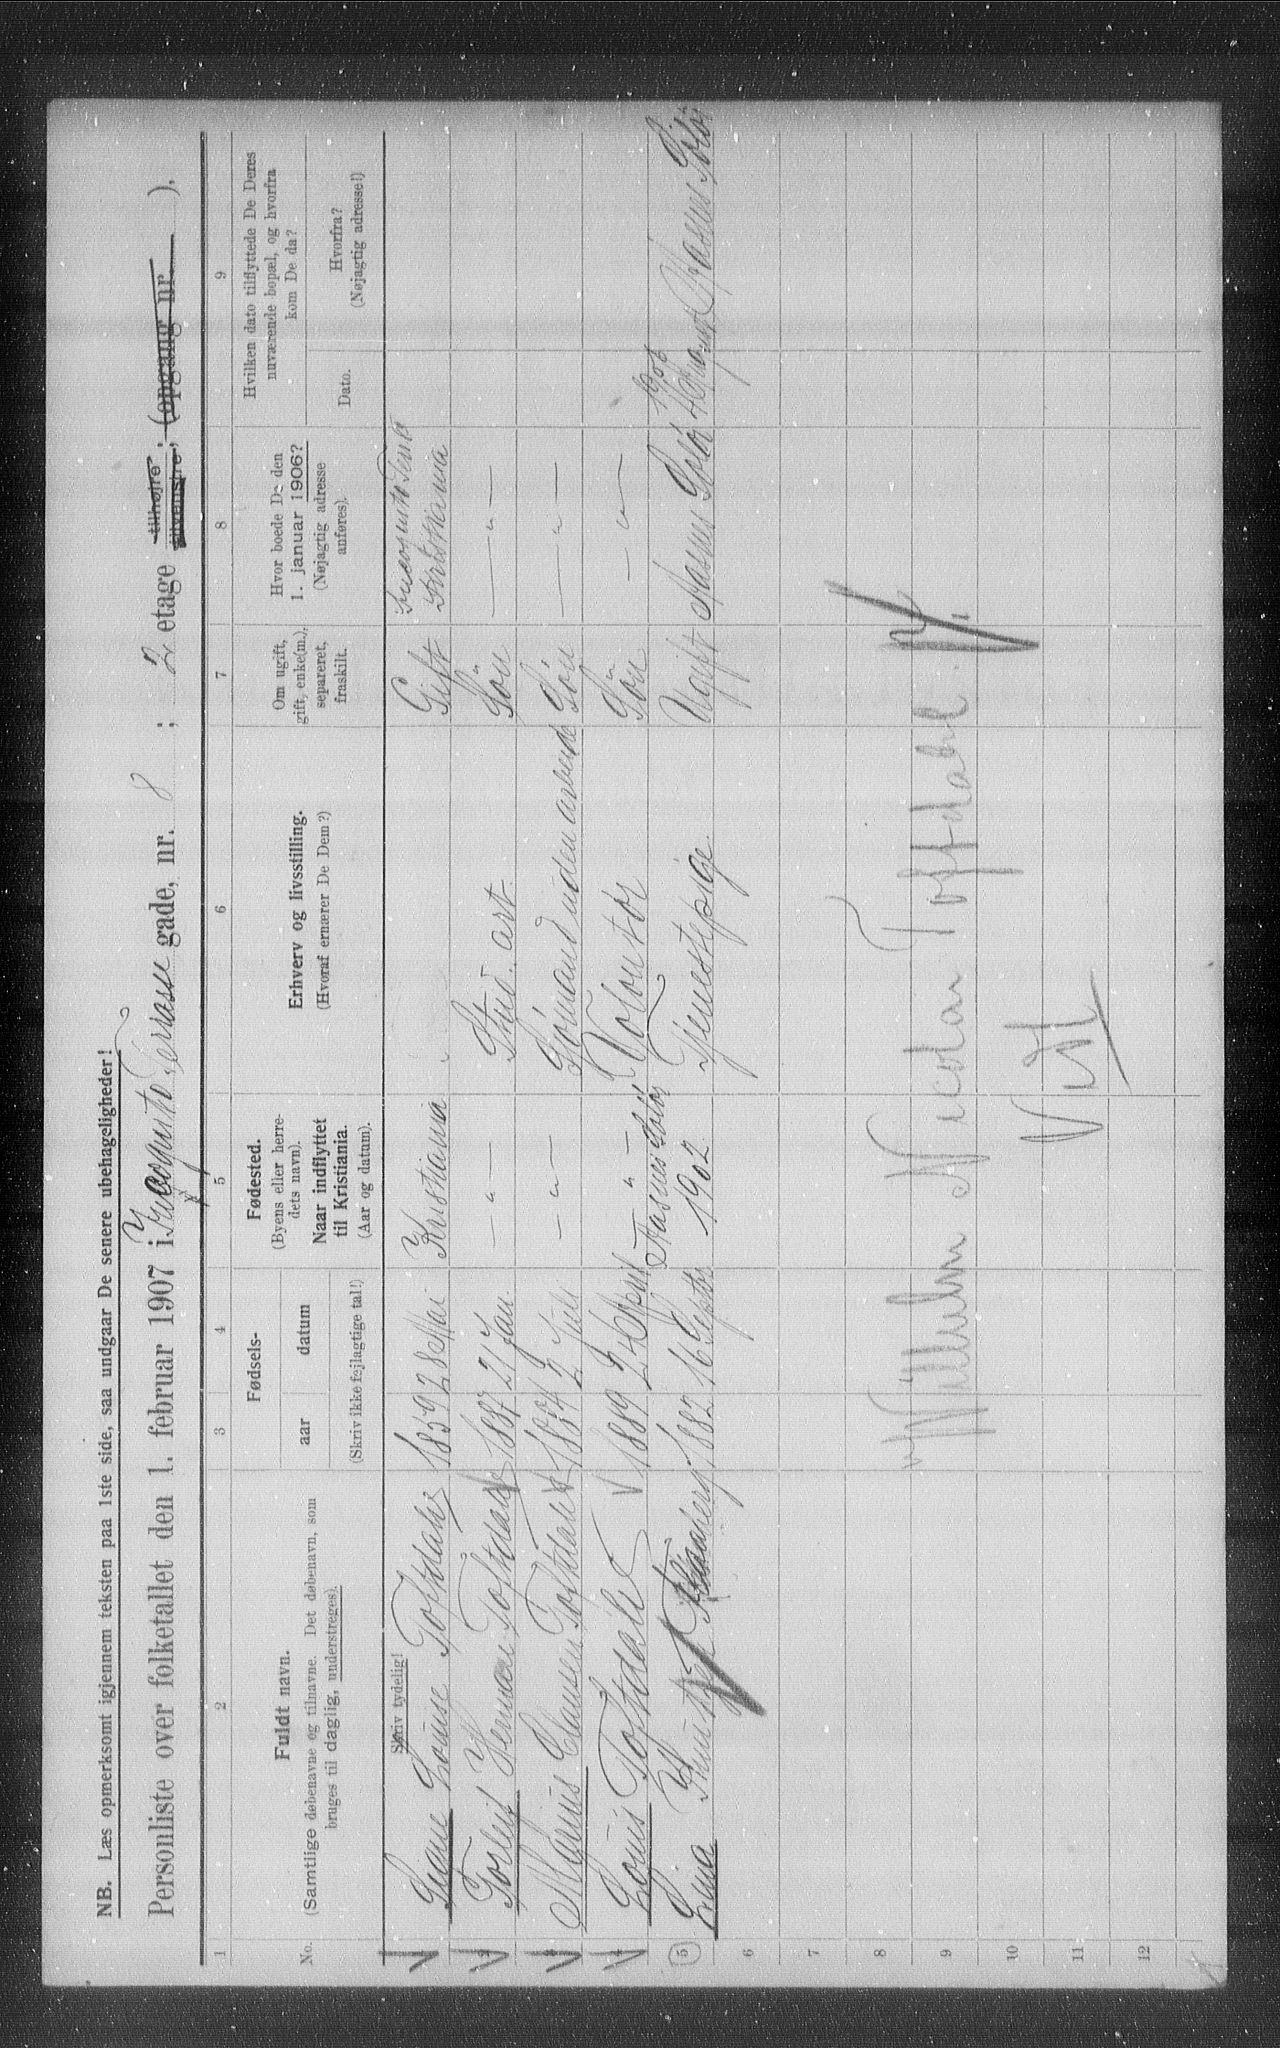 NB. Læs opmerksomt igjennem teksten paa 1ste side, saa undgaar De senere ubehageligheder!
Personliste over folketallet den 1. februar 1907 i Incognito Terrasse gade, nr. 8 ; 2 etage tilhøjre tilvenstre; (opgang nr. ).
1 2 3 4 5 6 7 8 9
No.
Fuldt navn.
(Samtlige døbenavne og tilnavne. Det døbenavn, som
bruges til daglig, understreges).
Fødsels-
aar datum
(Skriv ikke fejlagtige tal!)
Fødested.
(Byens eller herre-
dets navn).
Naar indflyttet
til Kristiania.
(Aar og datum).
Erhverv og livsstilling.
(Hvoraf ernærer De Dem?)
Om ugift,
gift, enke(m.),
separeret,
fraskilt.
Hvor boede De den
1. januar 1906?
(Nøjagtig adresse
anføres).
Hvilken dato tilflyttede De Deres
nuværende bopæl, og hvorfra
kom De da?
Dato.
Hvorfra?
(Nøjagtig adresse!)
Skriv tydelig!
1 Louise Toftdahl 1859 28 Mai Kristiania Gift Incognito Terr 8 Kristiania
2 Torleif Herman Toftdahl 1887 21 Jan. — " — Stud. art. Søn — " —
3 Marius Clausen Toftdahl 1884 2 Juli — " — Sömand uden arbeide Søn — " —
4 Louis Toftdahl 1889 24 April — " — Volontör Søn — " —
5 Lina 1882 16 Septbr Aasnes Solör 1902 Tjenestepige. Ugift Aasnes Solör 1906 Aasnes Solör
6
7
8
9 Wilhelm Nicolai Toftdahl
10
11
12